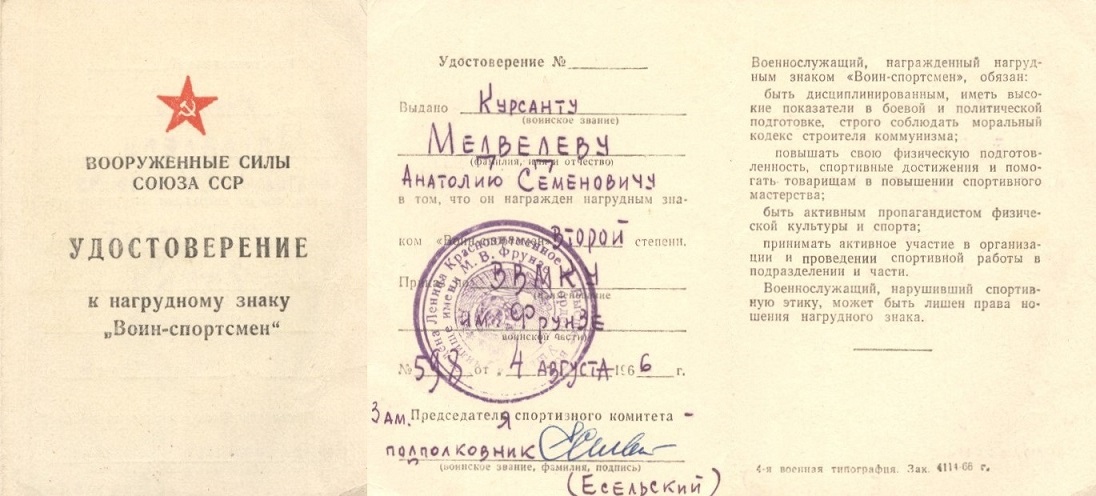 ВООРУЖЕННЫЕ СИЛЫ
СОЮЗА ССР
УДОСТОВЕРЕНИЕ
к нагрудному знаку
„Воин-спортсмен“
Удостоверение №
Выдано Курсанту
(воинское звание)
МЕДВЕДЕВУ
(фамилия, имя и отчество)
Анатолию Семеновичу
в том, что он награжден нагрудным зна-
ком «Воин-спортсмен» второй степени.
ВВМКУ
им. Фрунзе
воинской части)
№ 598 от 4 августа 1966 г.
Зам. Председателя спортивного комитета -
подполковник
(воинское звание, фамилия, подпись)
(Есельский)
Военнослужащий, награжденный нагруд-
ным знаком «Воин-спортсмен», обязан:
быть дисциплинированным, иметь высо-
кие показатели в боевой и политической
подготовке, строго соблюдать моральный
кодекс строителя коммунизма;
повышать свою физическую подготов-
ленность, спортивные достижения и помо-
гать товарищам в повышении спортивного
мастерства;
быть активным пропагандистом физиче-
ской культуры и спорта;
принимать активное участие в организа-
ции и проведении спортивной работы в
подразделении и части.
Военнослужащий, нарушивший спортив-
ную этику, может быть лишен права но-
шения нагрудного знака.
4-я военная типография. Зак. 4114-66 г.